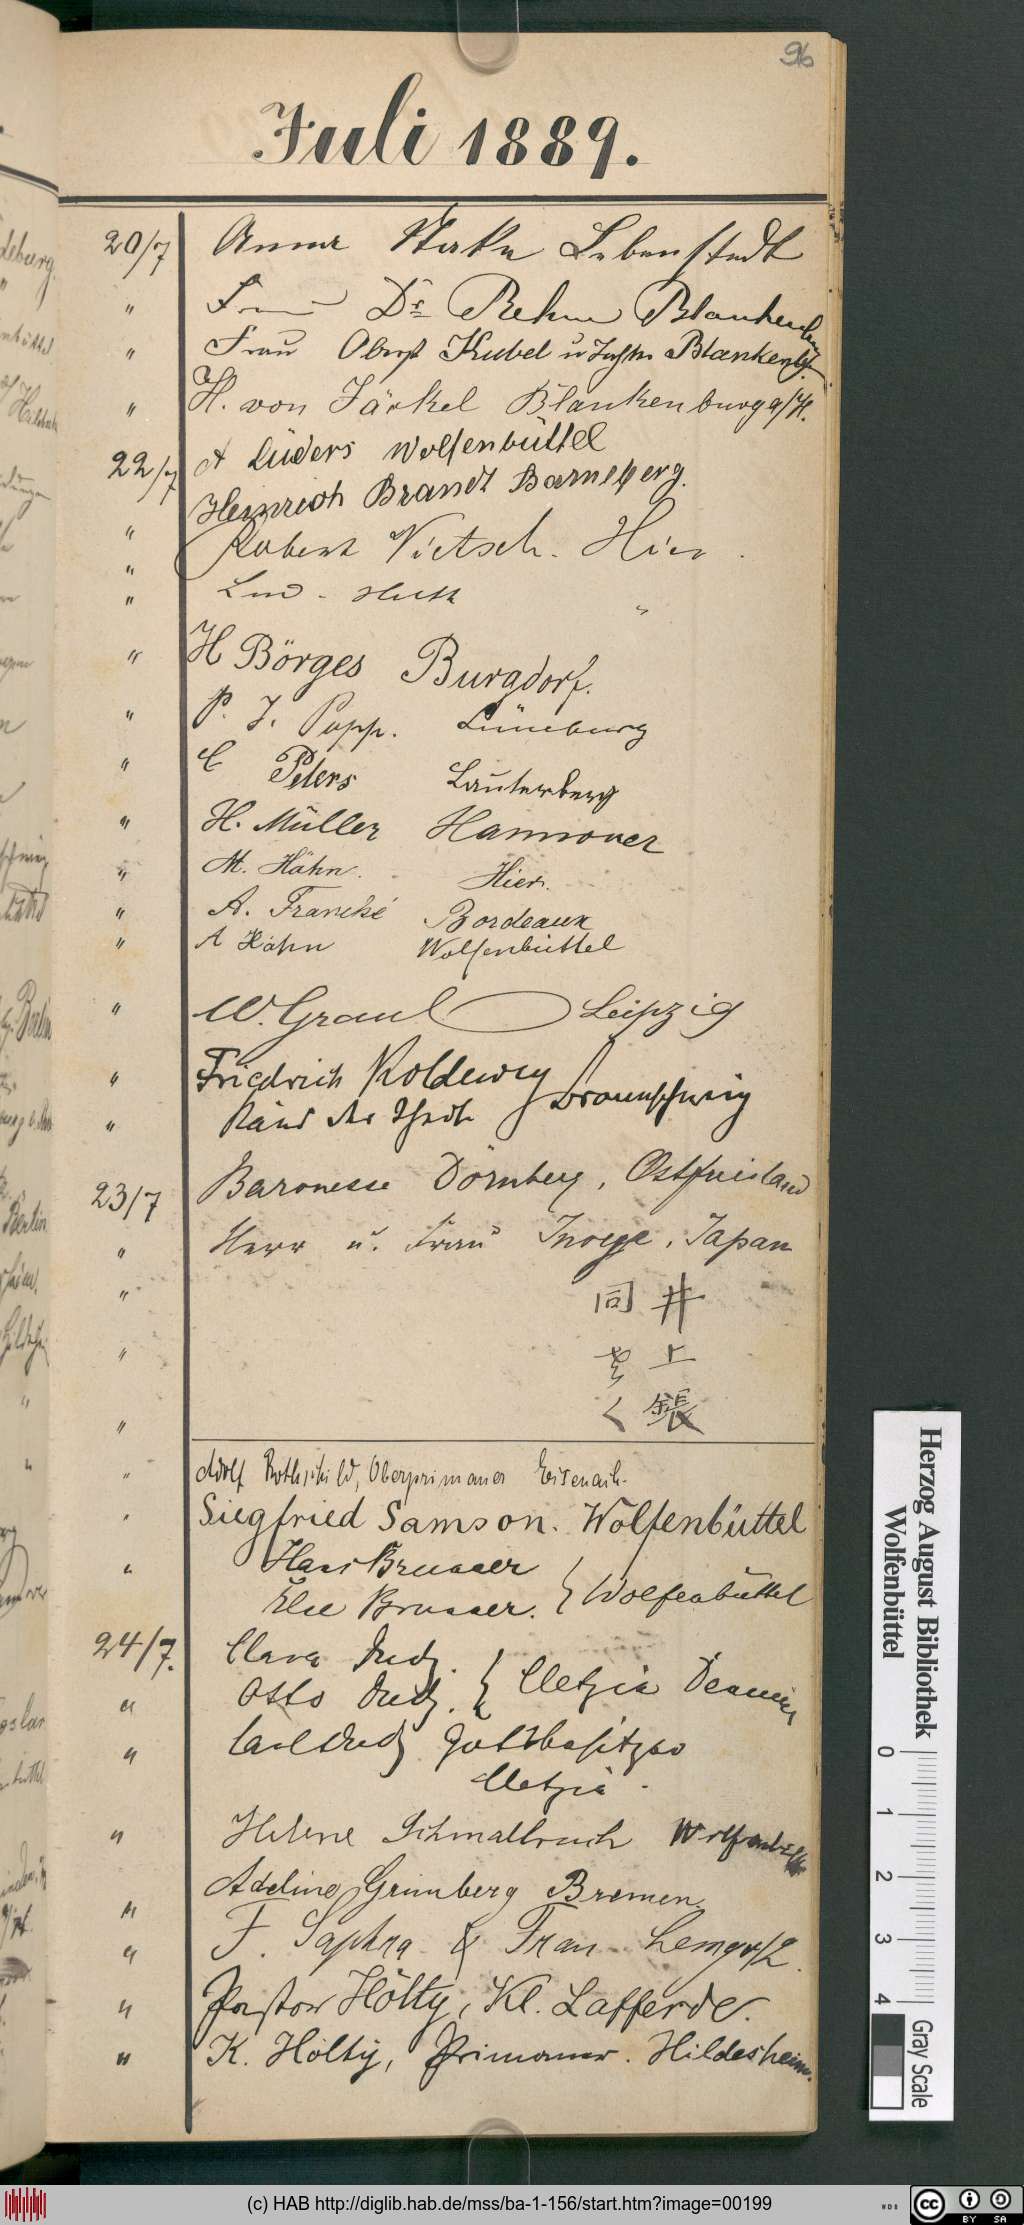 96
Juli 1889.
20/7 Anna Lebenstedt
" Frau Dr Rehm Blankenburg
" Frau Oberst Kubel u Tochter Blankenbg.
" H. von Järkel Blankenburg a/H.
22/7 A Lüders Wolfenbüttel
" Heinrich Brandt Barneberg.
" Robert Nietsch. Hier.
" Lud. Huth "
" H Börges Burgdorf.
" P. J. Popp. Lüneburg
" C Peters Lauterberg
" H. Müller Hannover
" M. Hähn. Hier.
" A. Francké Bordeaux
" A Hähn Wolfenbüttel
" W. Graul Leipzig
" Friedrich Koldewey Braunschweig
" Käthe
23/7 Baronesse Dörnberg, Ostfriesland
" Herr u. Frau Inouye, Japan
" 井上鋠
" 同 さく
"
" Adolf Rothschild, Oberprimaner Eisenach.
" Siegfried Samson. Wolfenbüttel
" Hans Brunner
Else Brunner. } Wolfenbüttel
24/7. Clara
" Otto } Cletzin Demmin
" Carl Gutsbesitzer
Cletzin.
" Helene Schmalbruch Wolfenbüttel
" Adeline Grimberg Bremen.
" F. Saphra & Frau Lemgo/L.
" Pastor Hölty, Kl. Lafferde.
" K. Hölty, Primaner. Hildesheim.
Herzog August Bibliothek
Wolfenbüttel
0 1 2 3 4
Gray Scale
(c) HAB http://diglib.hab.de/mss/ba-1-156/start.htm?image=00199
WDB
cc BY SA